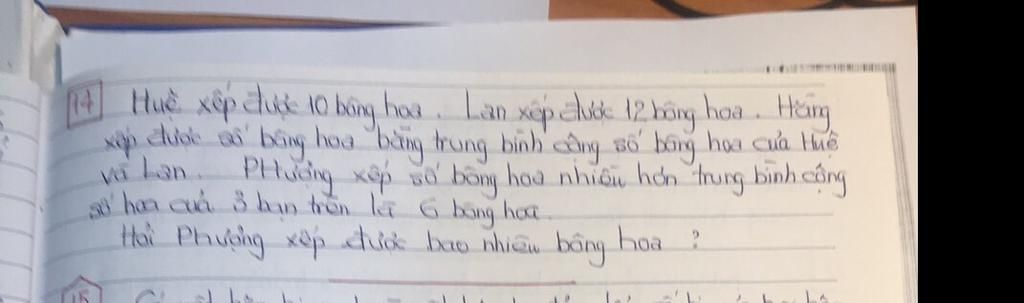 14 Huệ xếp được 10 bông hoa. Lan xếp được 12 bông hoa. Hằng
xếp được số bông hoa bằng trung bình cộng số bông hoa của Huệ
và Lan. Phượng xếp số bông hoa nhiều hơn trung bình cộng
số hoa của 3 bạn trên là 6 bông hoa.
Hỏi Phượng xếp được bao nhiêu bông hoa ?
15